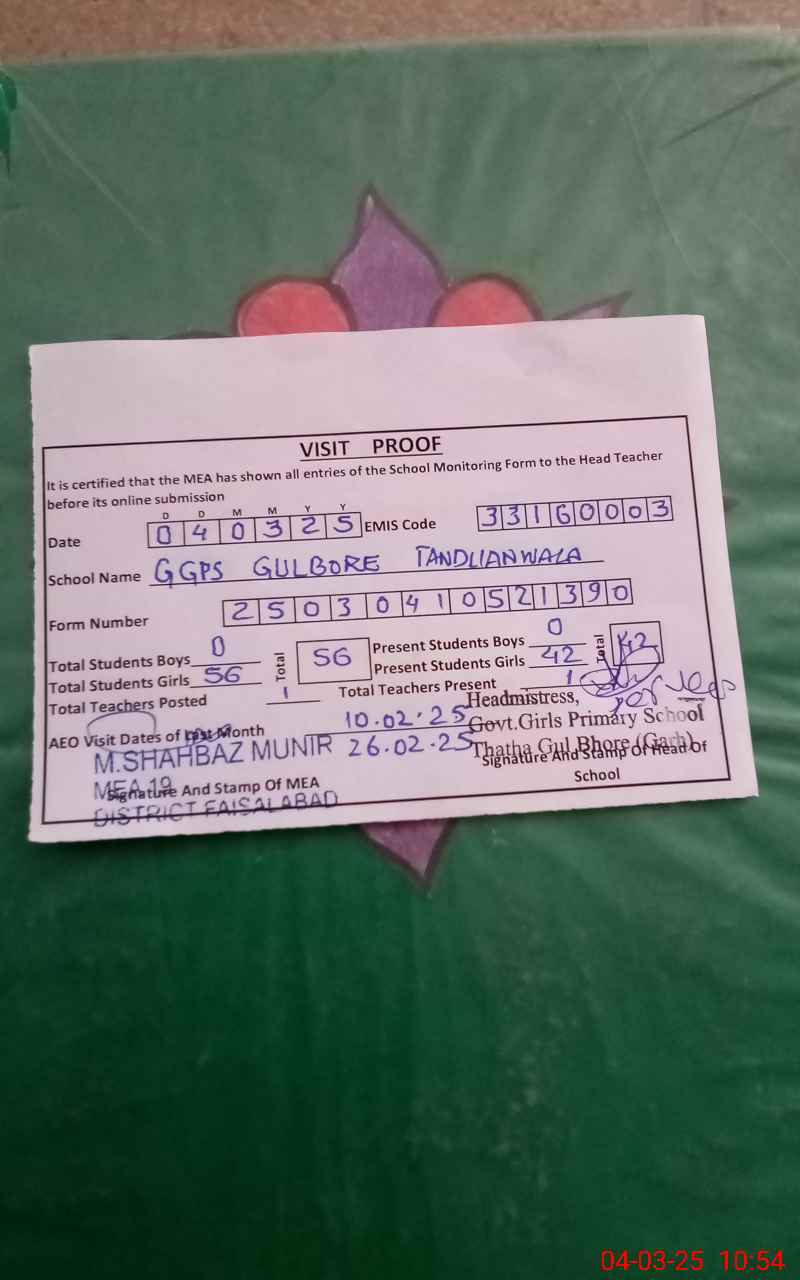 VISIT PROOF
It is certified that the MEA has shown all entries of the School Monitoring Form to the Head Teacher
before its online submission
D D M M Y Y
Date 0 4 0 3 2 5 EMIS Code 3 3 1 6 0 0 0 3
School Name GGPS GULBORE TANDLIANWALA
Form Number 2 5 0 3 0 4 1 0 5 2 1 3 9 0
Total Students Boys 0 Total 56 Present Students Boys 0 Total 42
Total Students Girls 56 Present Students Girls 42
Total Teachers Posted 1 Total Teachers Present 1
AEO Visit Dates of last Month 10.02.25 Headmistress,
26.02.25 Govt.Girls Primary School
M.SHAHBAZ MUNIR Thatha Gul Bhore (Garh)
MEA 19
Signature And Stamp Of MEA Signature And Stamp Of Head Of
DISTRICT FAISALABAD School
04-03-25 10:54